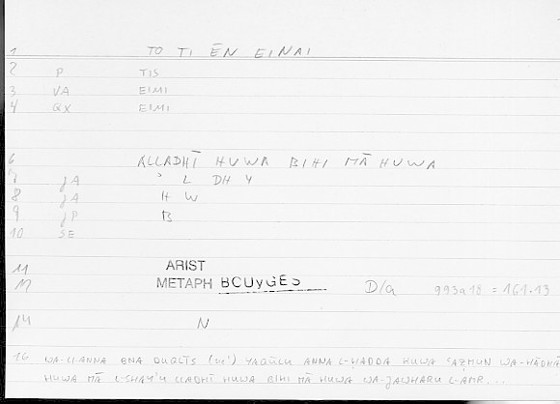 1 TO TI ĒN EINAI
2 P TIS
3 VA EIMI
4 QX EIMI
6 ALLADHĪ HUWA BIHI MĀ HUWA
7 JA ʾ L DH Y
8 JA H W
9 JP B
10 SE
11 ARIST
12 METAPH BOUYGES D/a 993a18 = 161.13
14 N
16 WA-LI-ANNA (vi') YAQŪLU ANNA L-ḤADDA HUWA WA-HĀDHĀ
HUWA MĀ L-SHAYʾU LLADHĪ HUWA BIHI MĀ HUWA WA-JAWHARU L-AMR...